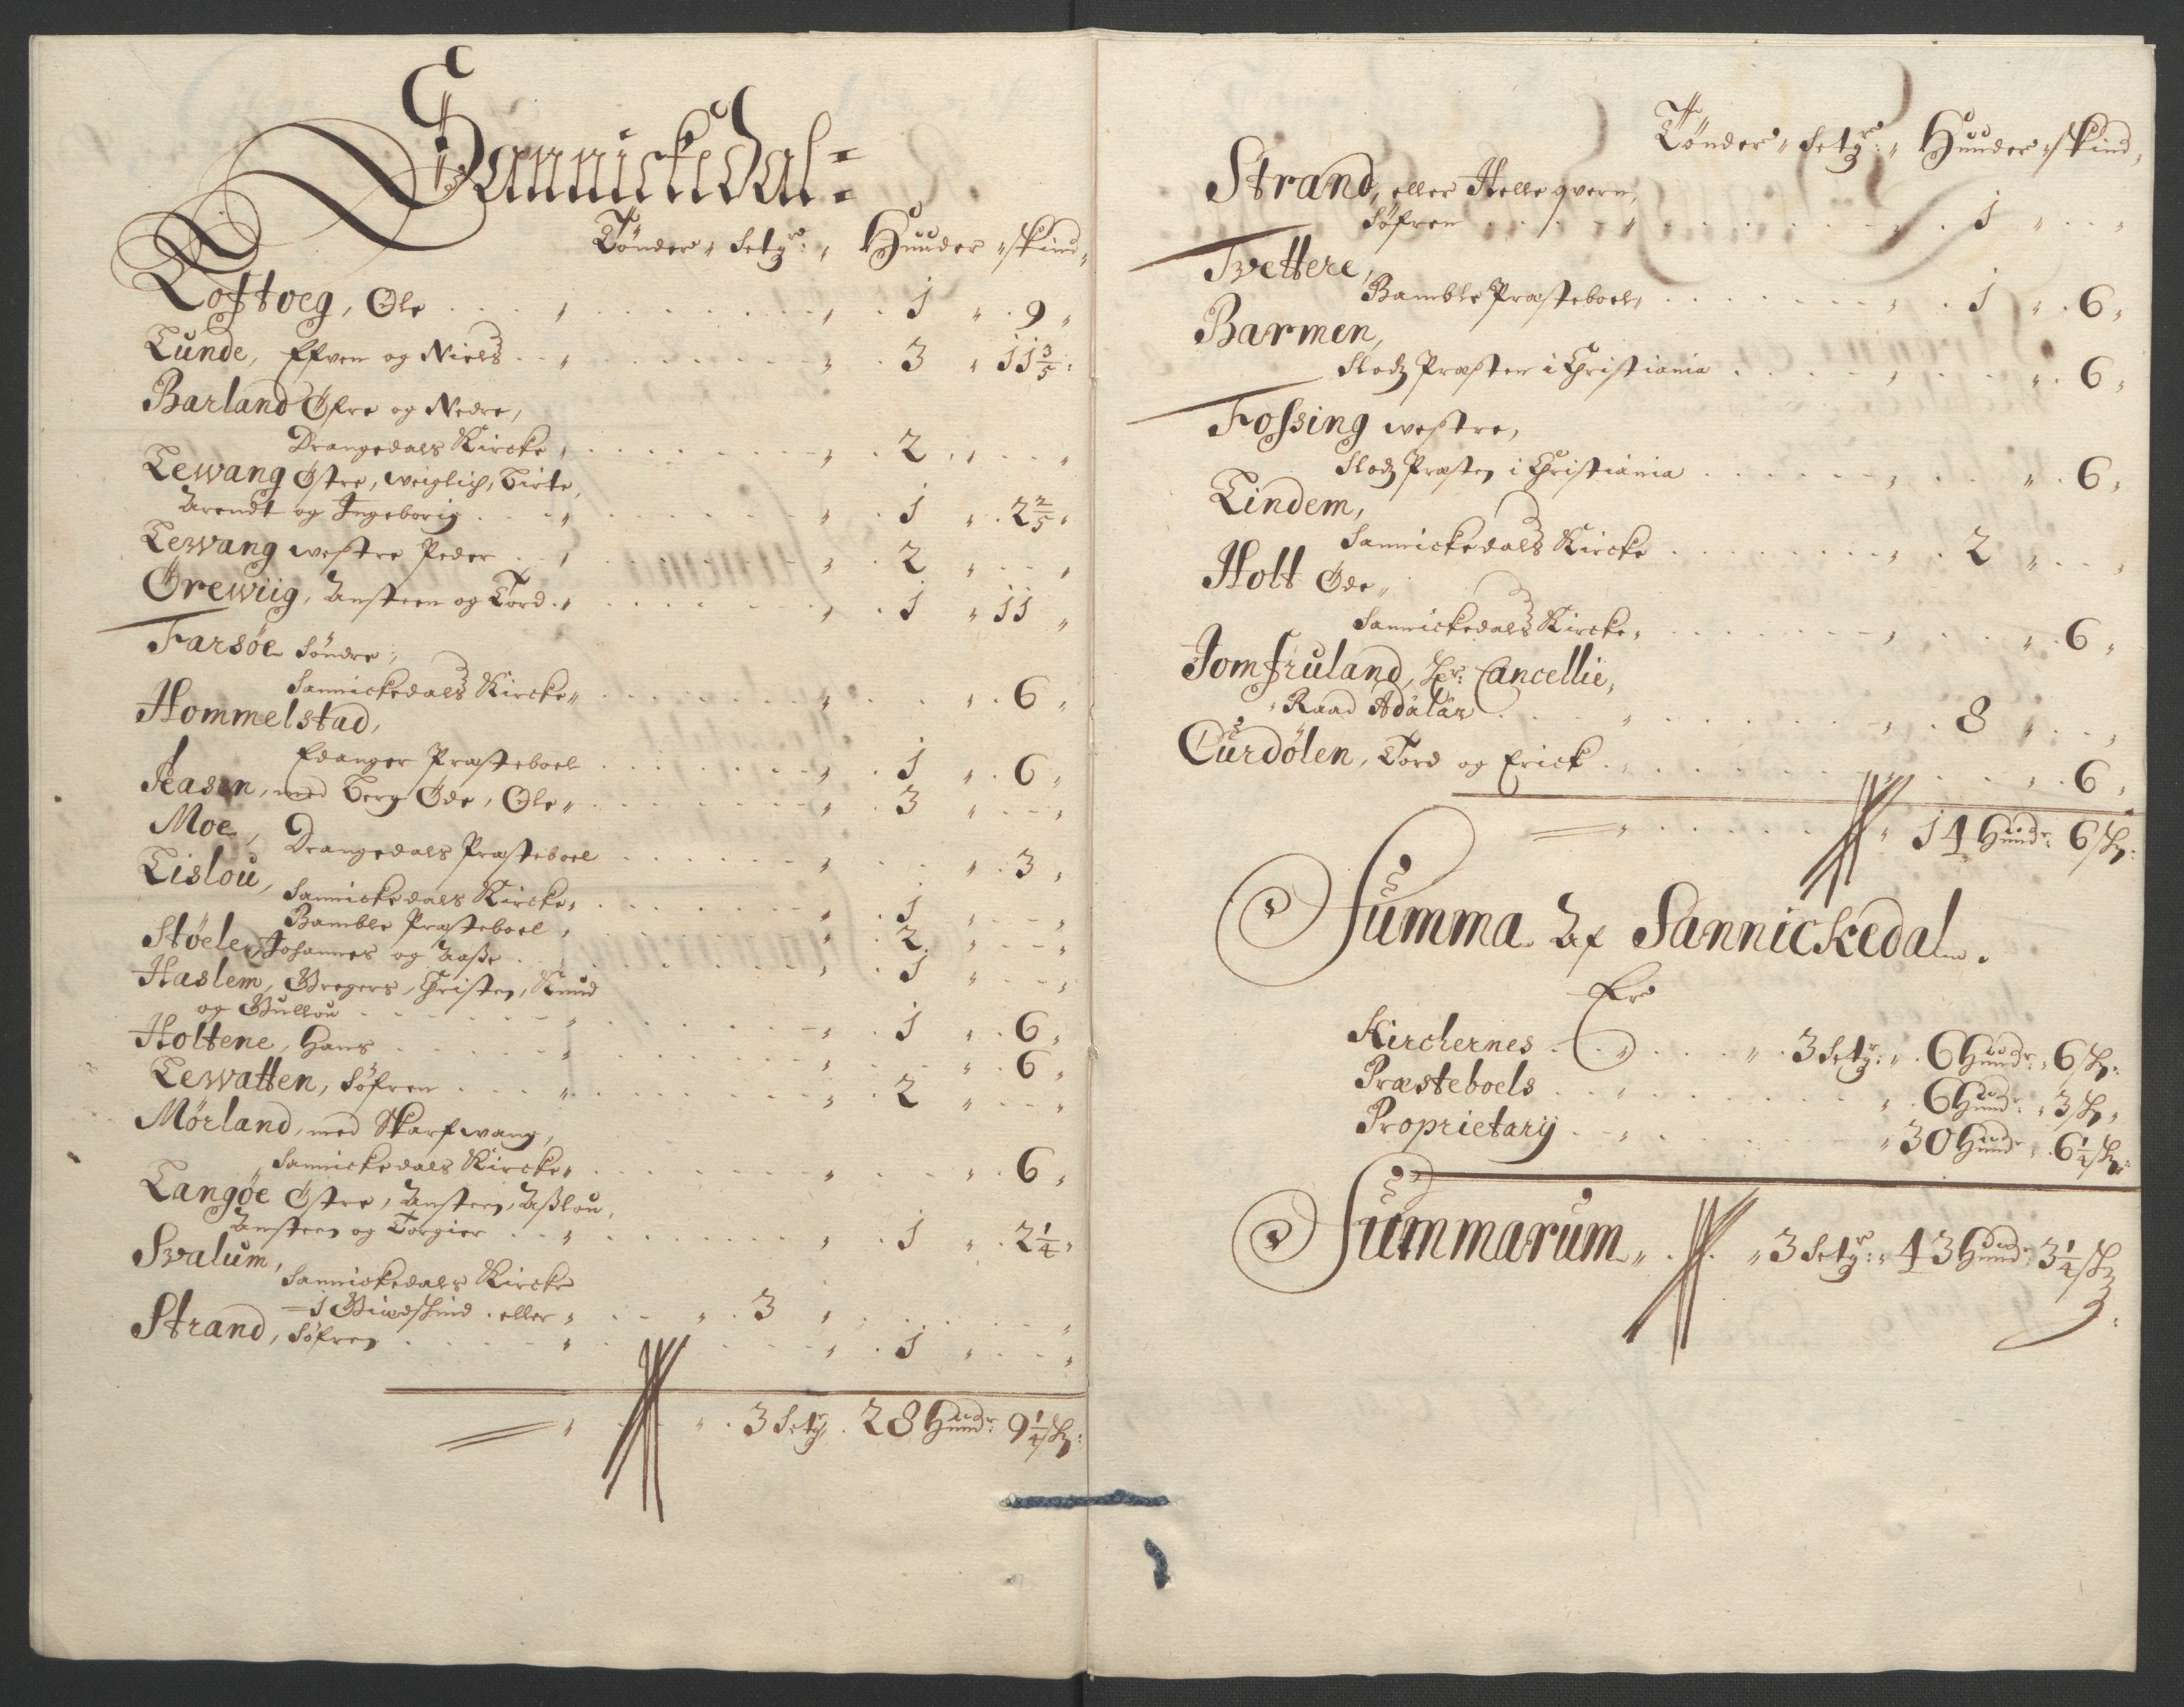 Sannickedal
Tønder " Setgr: " Huuder " skind "
Loftveg, Ole " " 1 " 9 "
Lunde, Efven og Niels " " 3 " 11 3/5:
Barland Øfre og Nedre,
Drangedals Kircke " " 2 " "
Lewang Østre, weiglich, Birte,
Arendt og Ingeborig " " 1 " 2 2/5 "
Lewang westre Peder " " 2 " "
Ørewiig, Ansteen og Tord " " 1 " 11 "
Farsøe Søndre,
Sannickedals Kircke " " " 6 "
Hommelstad,
Edanger Præsteboel " 1 " 6 "
Aasen, med Berg Øde, Ole " " 3 " "
Moe, Drangedals Præsteboel " " 3 "
Lislou, Sannickedals Kircke, " 1 " "
Bamble Præsteboel, " 2 " "
Støele, Johannes og Aasse " 1 " "
Haslem, Gregers, Christen, Knud
og Gullou " " 1 " 6 "
Holtene, Hans " " " 6 "
Lewatten, Søfren " " 2 " "
Mørland, med Skarfwang,
Sannickedals Kircke " " " 6 "
Langøe Østre, Ansteen, Aslou,
Ansteen og Torgier " " 1 " 2 1/4 "
Svalum,
Sannickedals Kircke
1 Giedskind. eller " " 3 " "
Strand, Søfren " " 1 " "
" " 3 Setgr. 28 Huudr: 9 1/4 sk:
Tønder " Setgr: " Huuder " skind "
Strand, eller Hellegvern,
Søfren " " 1 " "
Tvettere,
Bamble Præsteboel " " 1 " 6 "
Barmen,
Slodz Præsten i Christiania " " 6 "
Fossing westre,
Slodz Præsten i Christiania " " 6 "
Lindem,
Sannickedals Kircke " 2 " "
Holt Øde "
Sannickedals Kircke " " " 6 "
Jomfruland, Hr: Cancellie,
Raad Adälär " " 8 " "
Curdølen, Tord og Erick " " 6 "
" " 14 Huudr: 6 sk:
Summa Af Sannickedal.
Er
Kirchernes " " 3 Setgr: " 6 Huudr: " 6 sk:
Præsteboels " " 6 Huudr: " 3 sk "
Proprietarÿ " " 30 Huudr " 6 1/4 sk:
Summarum " " 3 Setgr: " 43 Huudr: 3 1/4 sk